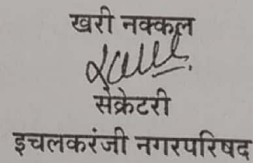 खरी नक्कल
सेक्रेटरी
इचलकरंजी नगरपरिषद